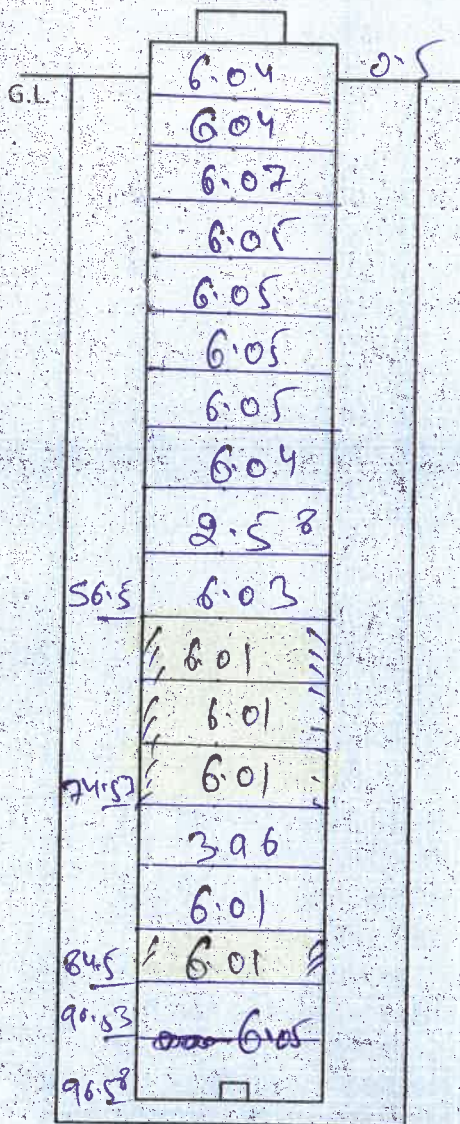 6.04 0.5
G.L.
6.04
6.07
6.05
6.05
6.05
6.05
6.04
2.58
56.5 6.03
6.01
6.01
74.53 6.01
3.96
6.01
84.5 6.01
90.53 6.05
96.58